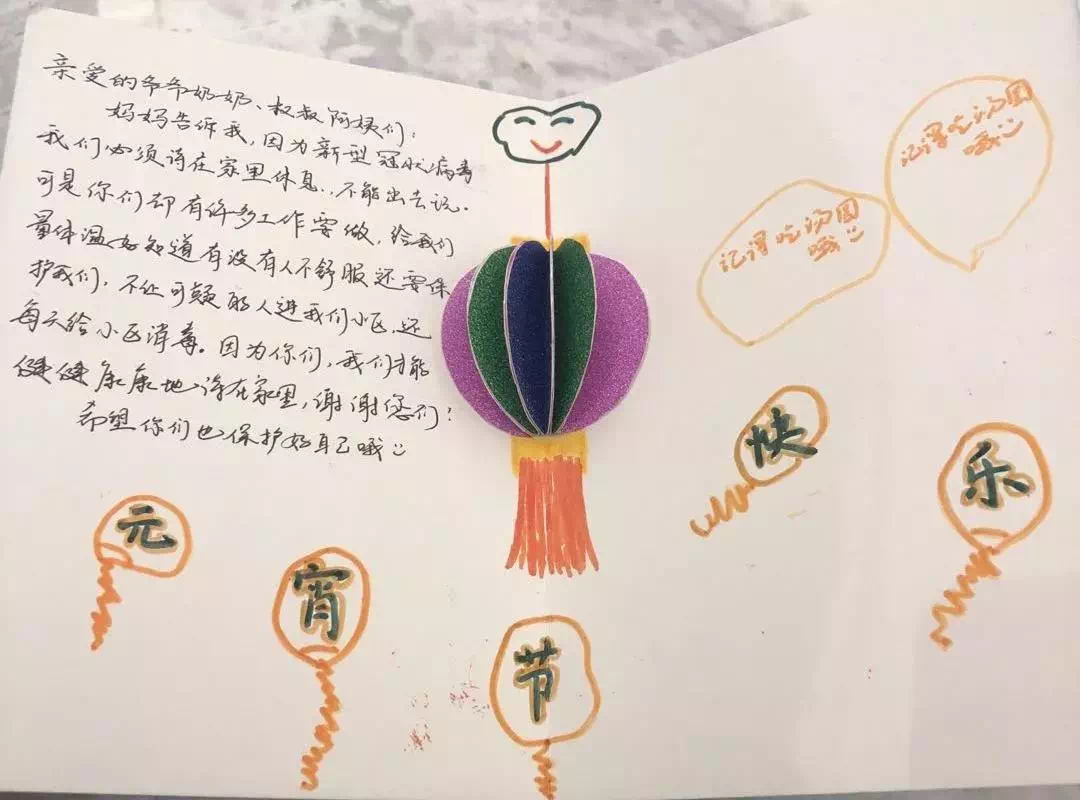 亲爱的爷爷奶奶、叔叔阿姨们：
妈妈告诉我，因为新型冠状病毒
我们必须待在家里休息..不能出去玩.
可是你们却有许多工作要做，给我们
量体温好知道有没有人不舒服还要保
护我们，不让可疑的人进我们小区，还
每天给小区消毒。因为你们，我们才能
健健康康地待在家里，谢谢您们！
希望你们也保护好自己哦
记得吃汤圆
哦
记得吃汤圆
哦
元宵节快乐